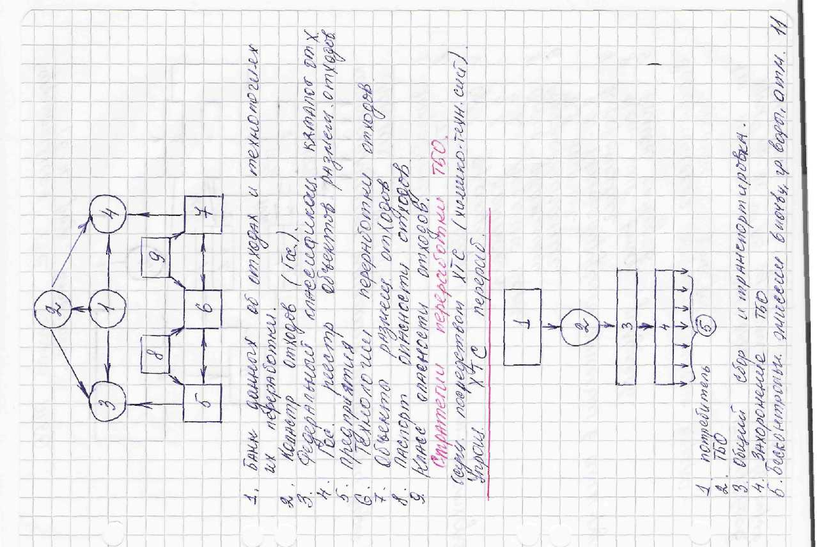 2
3 1 4
8 9
5 6 7
1. Банк данных об отходах и технологиях
их переработки.
2. Кадастр отходов (Гос.).
3. Федеральный классификац. каталог отх.
4. Гос. реестр объектов размещ. отходов
5. Предприятия
6. Технологии переработки отходов
7. Объекты размещ. отходов
8. Паспорт опасности отходов
9. Класс опасности отходов.
Стратегии переработки ТБО.
посредством ХТС (химико-техн. сист).
Упрощ. ХТС перераб.
1
2
3
4
5
1 потребитель
2. ТБО
3. Общий сбор и транспортировка.
4. Захоронение ТБО
5. Бесконтрольн. эмиссии в почву, гр. воды, атм. 11